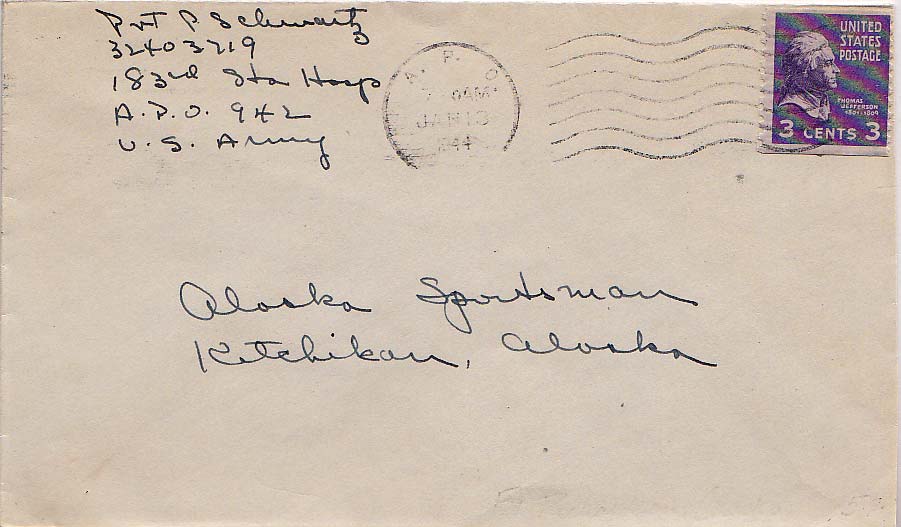 Pvt P. Schwartz
32403719
183rd Sta Hosp
A.P.O. 942
U. S. Army
A. P. O
AM
JAN 13
1944
UNITED
STATES
POSTAGE
THOMAS
JEFFERSON
1801-1809
3 CENTS 3
Alaska Sportsman
Ketchikan, Alaska